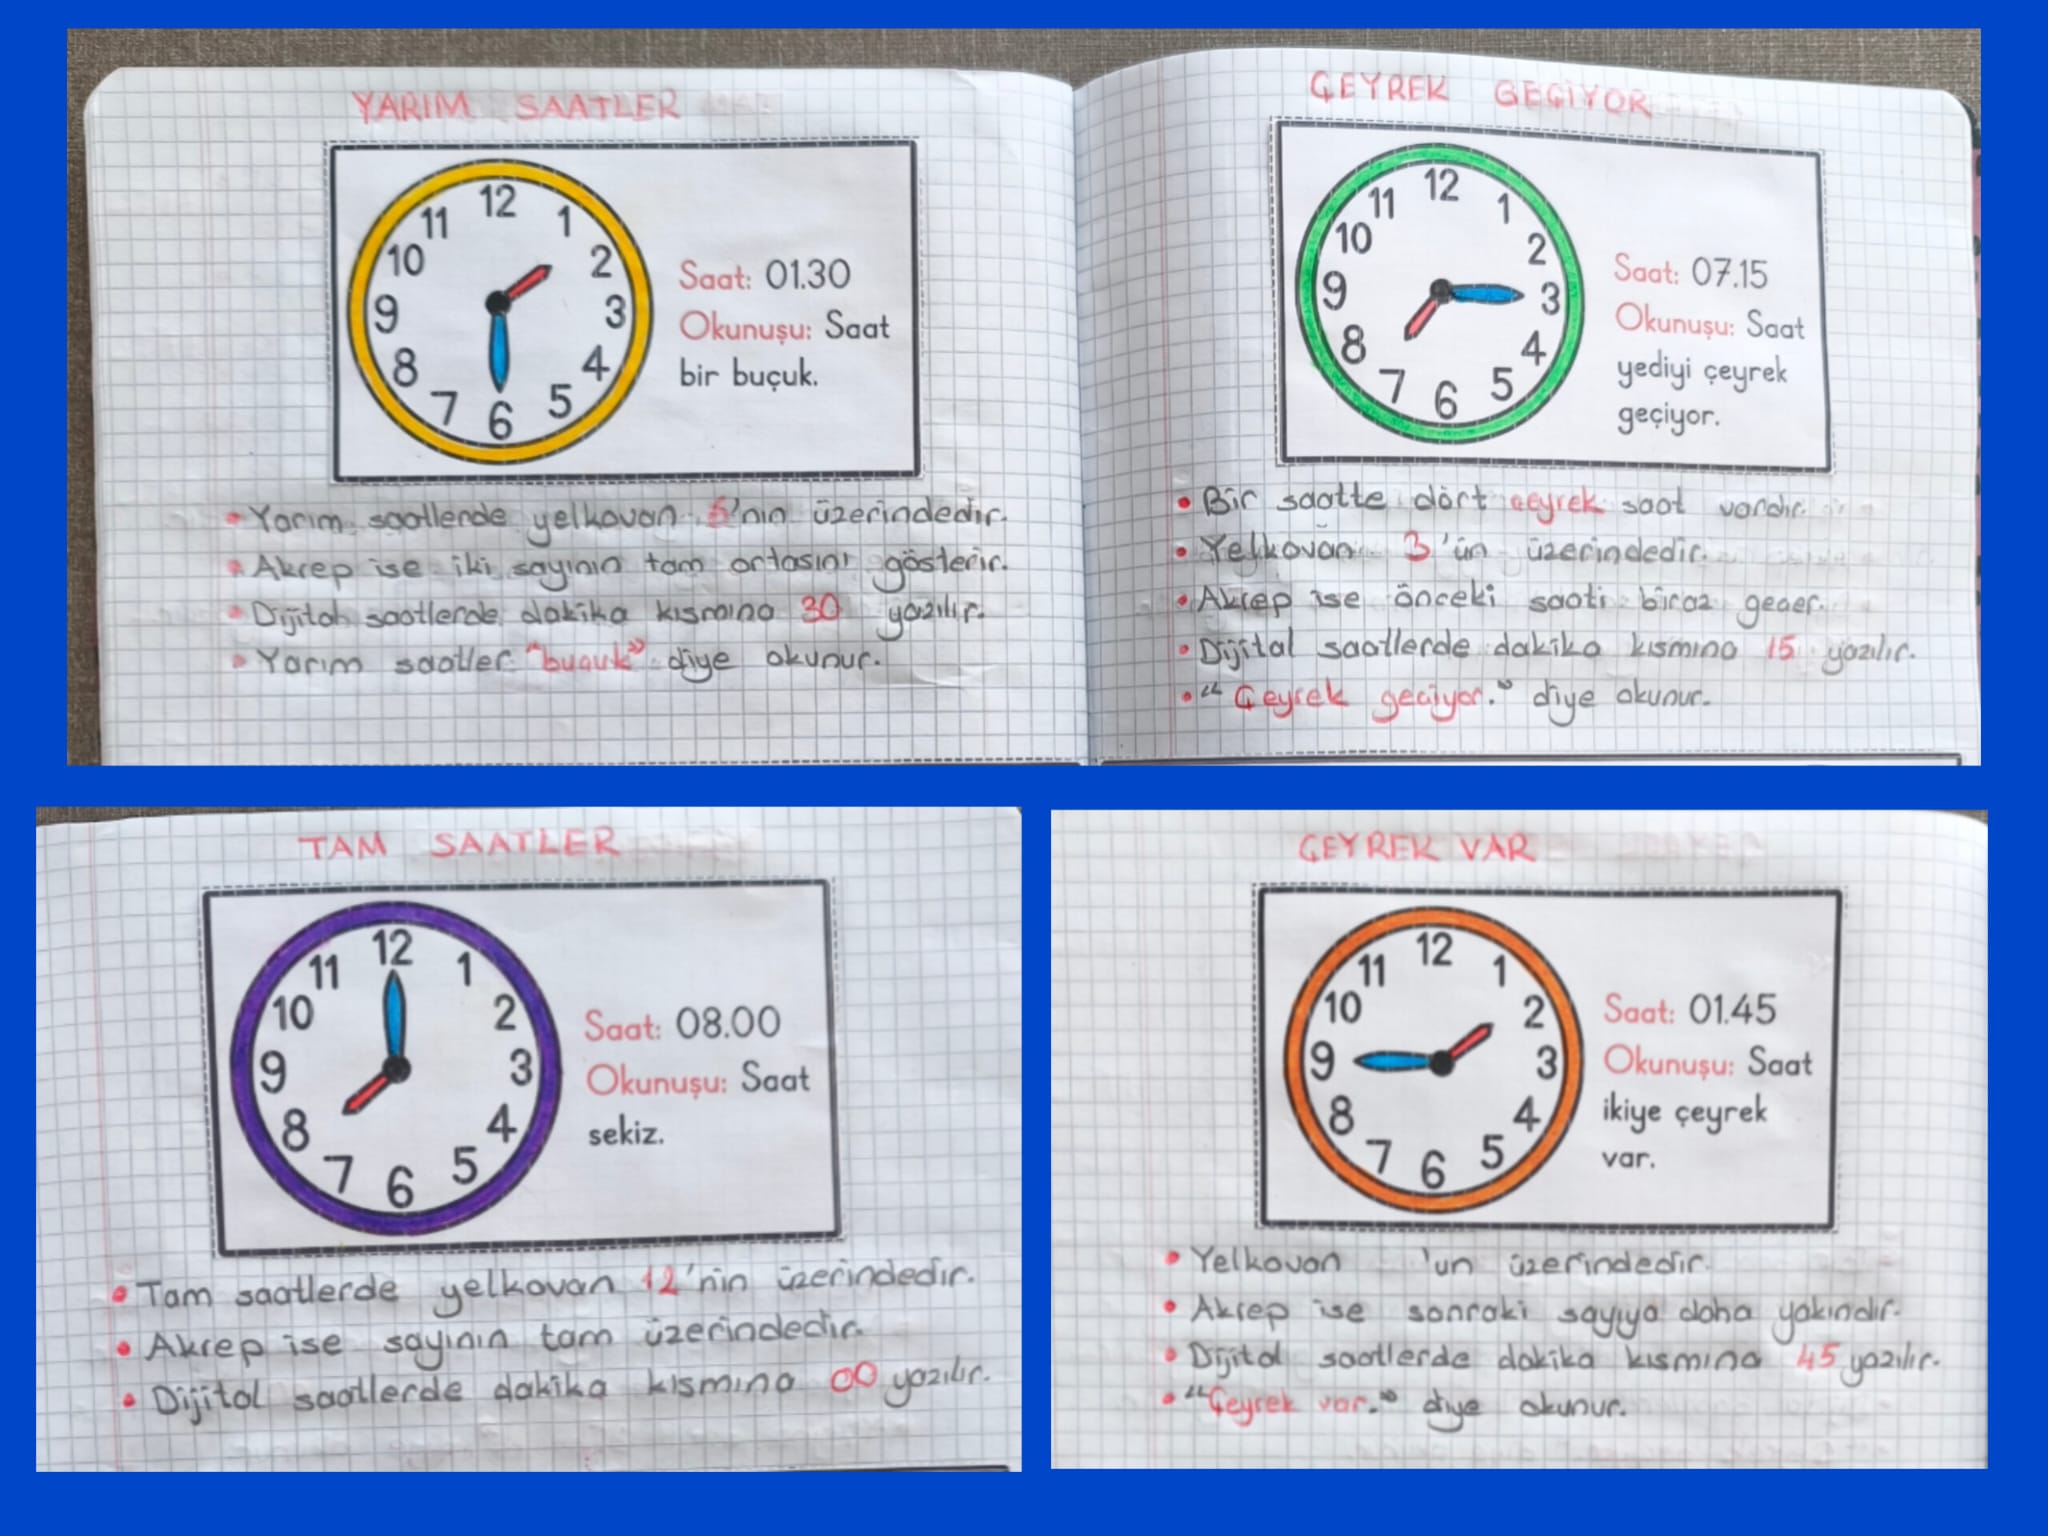 YARIM SAATLER
12
11
1
10
2
9
3
8
4
7
5
6
Saat: 01.30
Okunuşu: Saat
bir buçuk.
• Yarım saatlerde yelkovan 6'nın üzerindedir.
• Akrep ise iki sayının tam ortasını gösterir.
• Dijital saatlerde dakika kısmına 30 yazılır.
• Yarım saatler "buçuk" diye okunur.
ÇEYREK GEÇİYOR
12
11
1
10
2
9
3
8
4
7
5
6
Saat: 07.15
Okunuşu: Saat
yediyi çeyrek
geçiyor.
• Bir saatte dört çeyrek saat vardır.
• Yelkovan 3'ün üzerindedir.
• Akrep ise önceki saati biraz geçer.
• Dijital saatlerde dakika kısmına 15 yazılır.
• "Çeyrek geçiyor." diye okunur.
TAM SAATLER
12
11
1
10
2
9
3
8
4
7
5
6
Saat: 08.00
Okunuşu: Saat
sekiz.
• Tam saatlerde yelkovan 12'nin üzerindedir.
• Akrep ise sayının tam üzerindedir.
• Dijital saatlerde dakika kısmına 00 yazılır.
ÇEYREK VAR
12
11
1
10
2
9
3
8
4
7
5
6
Saat: 01.45
Okunuşu: Saat
ikiye çeyrek
var.
• Yelkovan 'un üzerindedir.
• Akrep ise sonraki sayıya daha yakındır.
• Dijital saatlerde dakika kısmına 45 yazılır.
• "Çeyrek var." diye okunur.